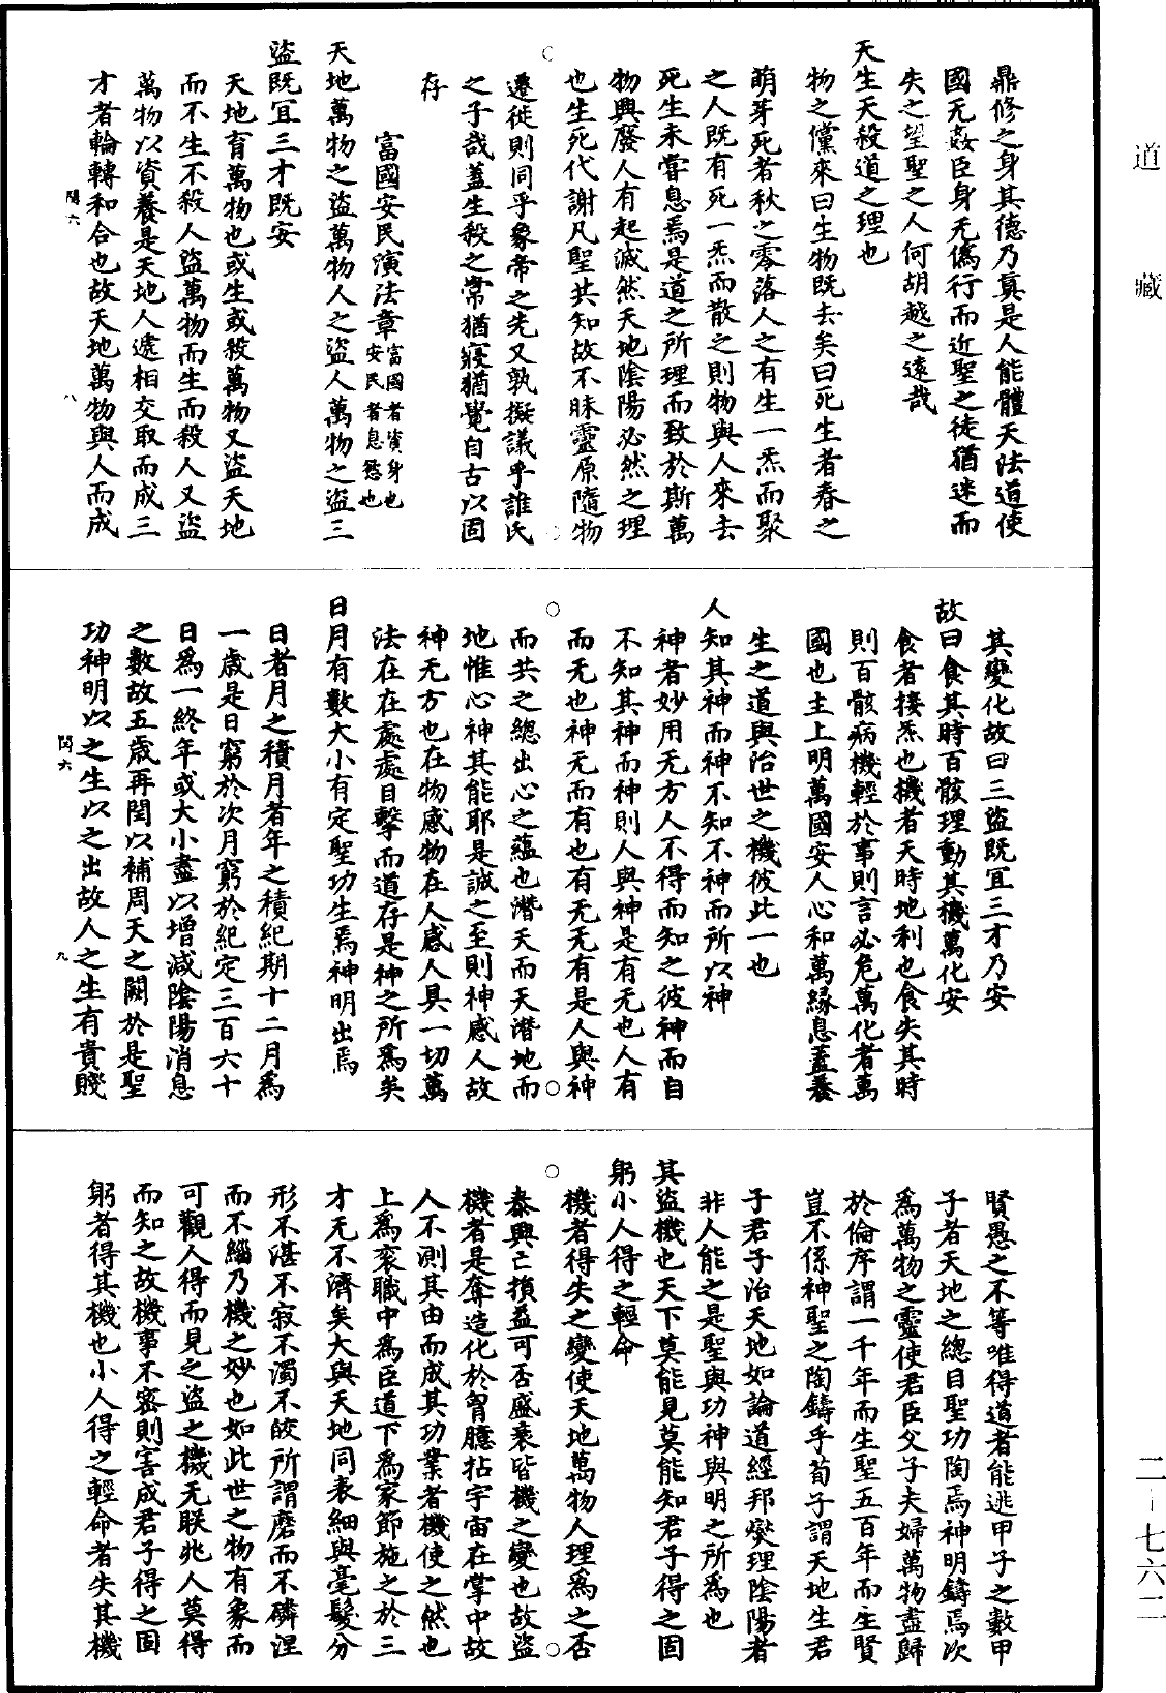 道藏
鼎修之身其德乃真是人能體天法道使
國无姦臣身无僞行而近聖之徒猶迷而
失之望聖之人何胡越之遠哉
天生天殺道之理也
物之儻來曰生物既去矣曰死生者春之
萌芽死者秋之零落人之有生一炁而聚
之人既有死一炁而散之則物與人來去
死生未嘗息焉是道之所理而致於斯萬
物興廢人有起滅然天地陰陽必然之理
也生死代謝凡聖共知故不昧靈原隨物
遷徙則同乎象帝之先又孰擬議乎誰氏
之子哉蓋生殺之常猶寢猶覺自古以固
存
富國安民演法章富國者資身也安民者息慾也
天地萬物之盜萬物人之盜人萬物之盜三
盜既宜三才既安
天地育萬物也或生或殺萬物又盜天地
而不生不殺人盜萬物而生而殺人又盜
萬物以資養是天地人遞相交取而成三
才者輪轉和合也故天地萬物與人而成
閏六
八
其變化故曰三盜既宜三才乃安
故曰食其時百骸理動其機萬化安
食者接炁也機者天時地利也食失其時
則百骸病機輕於事則言必危萬化者萬
國也主上明萬國安人心和萬緣息蓋養
生之道與治世之機彼此一也
人知其神而神不知不神而所以神
神者妙用无方人不得而知之彼神而自
不知其神而神則人與神是有无也人有
而无也神无而有也有无无有是人與神
而共之總出心之蘊也潛天而天潛地而
地惟心神其能耶是誠之至則神感人故
神无方也在物感物在人感人具一切萬
法在在處處目擊而道存是神之所為矣
日月有數大小有定聖功生焉神明出焉
日者月之積月者年之積紀期十二月爲
一歲是日窮於次月窮於紀定三百六十
日爲一終年或大小盡以增減陰陽消息
之數故五歲再閏以補周天之闕於是聖
功神明以之生以之出故人之生有貴賤
閏六
九
賢愚之不等唯得道者能逃甲子之數甲
子者天地之總目聖功陶焉神明鑄焉次
爲萬物之靈使君臣父子夫婦萬物盡歸
於倫序謂一千年而生聖五百年而生賢
豈不係神聖之陶鑄乎荀子謂天地生君
子君子治天地如論道經邦爕理陰陽者
非人能之是聖與功神與明之所爲也
其盜機也天下莫能見莫能知君子得之固
躬小人得之輕命
機者得失之變使天地萬物人理爲之否
泰興亡損益可否盛衰皆機之變也故盜
機者是奪造化於胷臆拈宇宙在掌中故
人不測其由而成其功業者機使之然也
上爲衮職中爲臣道下爲家節施之於三
才无不濟矣大與天地同表細與毫髮分
形不湛不寂不濁不皎所謂磨而不磷涅
而不緇乃機之妙也如此世之物有象而
可觀人得而見之盜之機无朕兆人莫得
而知之故機事不密則害成君子得之固
躬者得其機也小人得之輕命者失其機
二-七六二